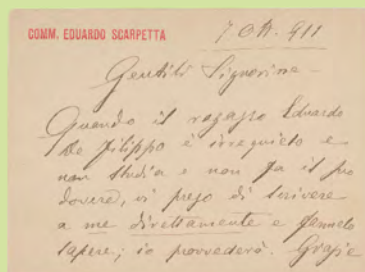 COMM. EDUARDO SCARPETTA
7 Ott. 911
Gentili Signorine -
Quando il ragazzo Eduardo
De Filippo è irrequieto e
non studia e non fa il suo
dovere, vi prego di scrivere
a me direttamente e farmelo
sapere; io provvederò. Grazie